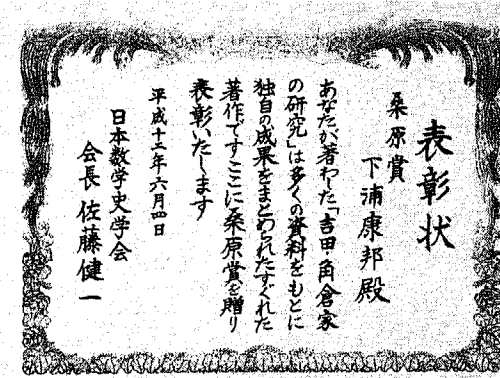 表彰状
桑原賞
下浦康邦殿
あなたが著わした「吉田・角倉家
の研究」は多くの資料をもとに
独自の成果をまとめられたすぐれた
著作ですここに桑原賞を贈り
表彰いたします
平成十二年六月四日
日本数学史学会
会長 佐藤健一